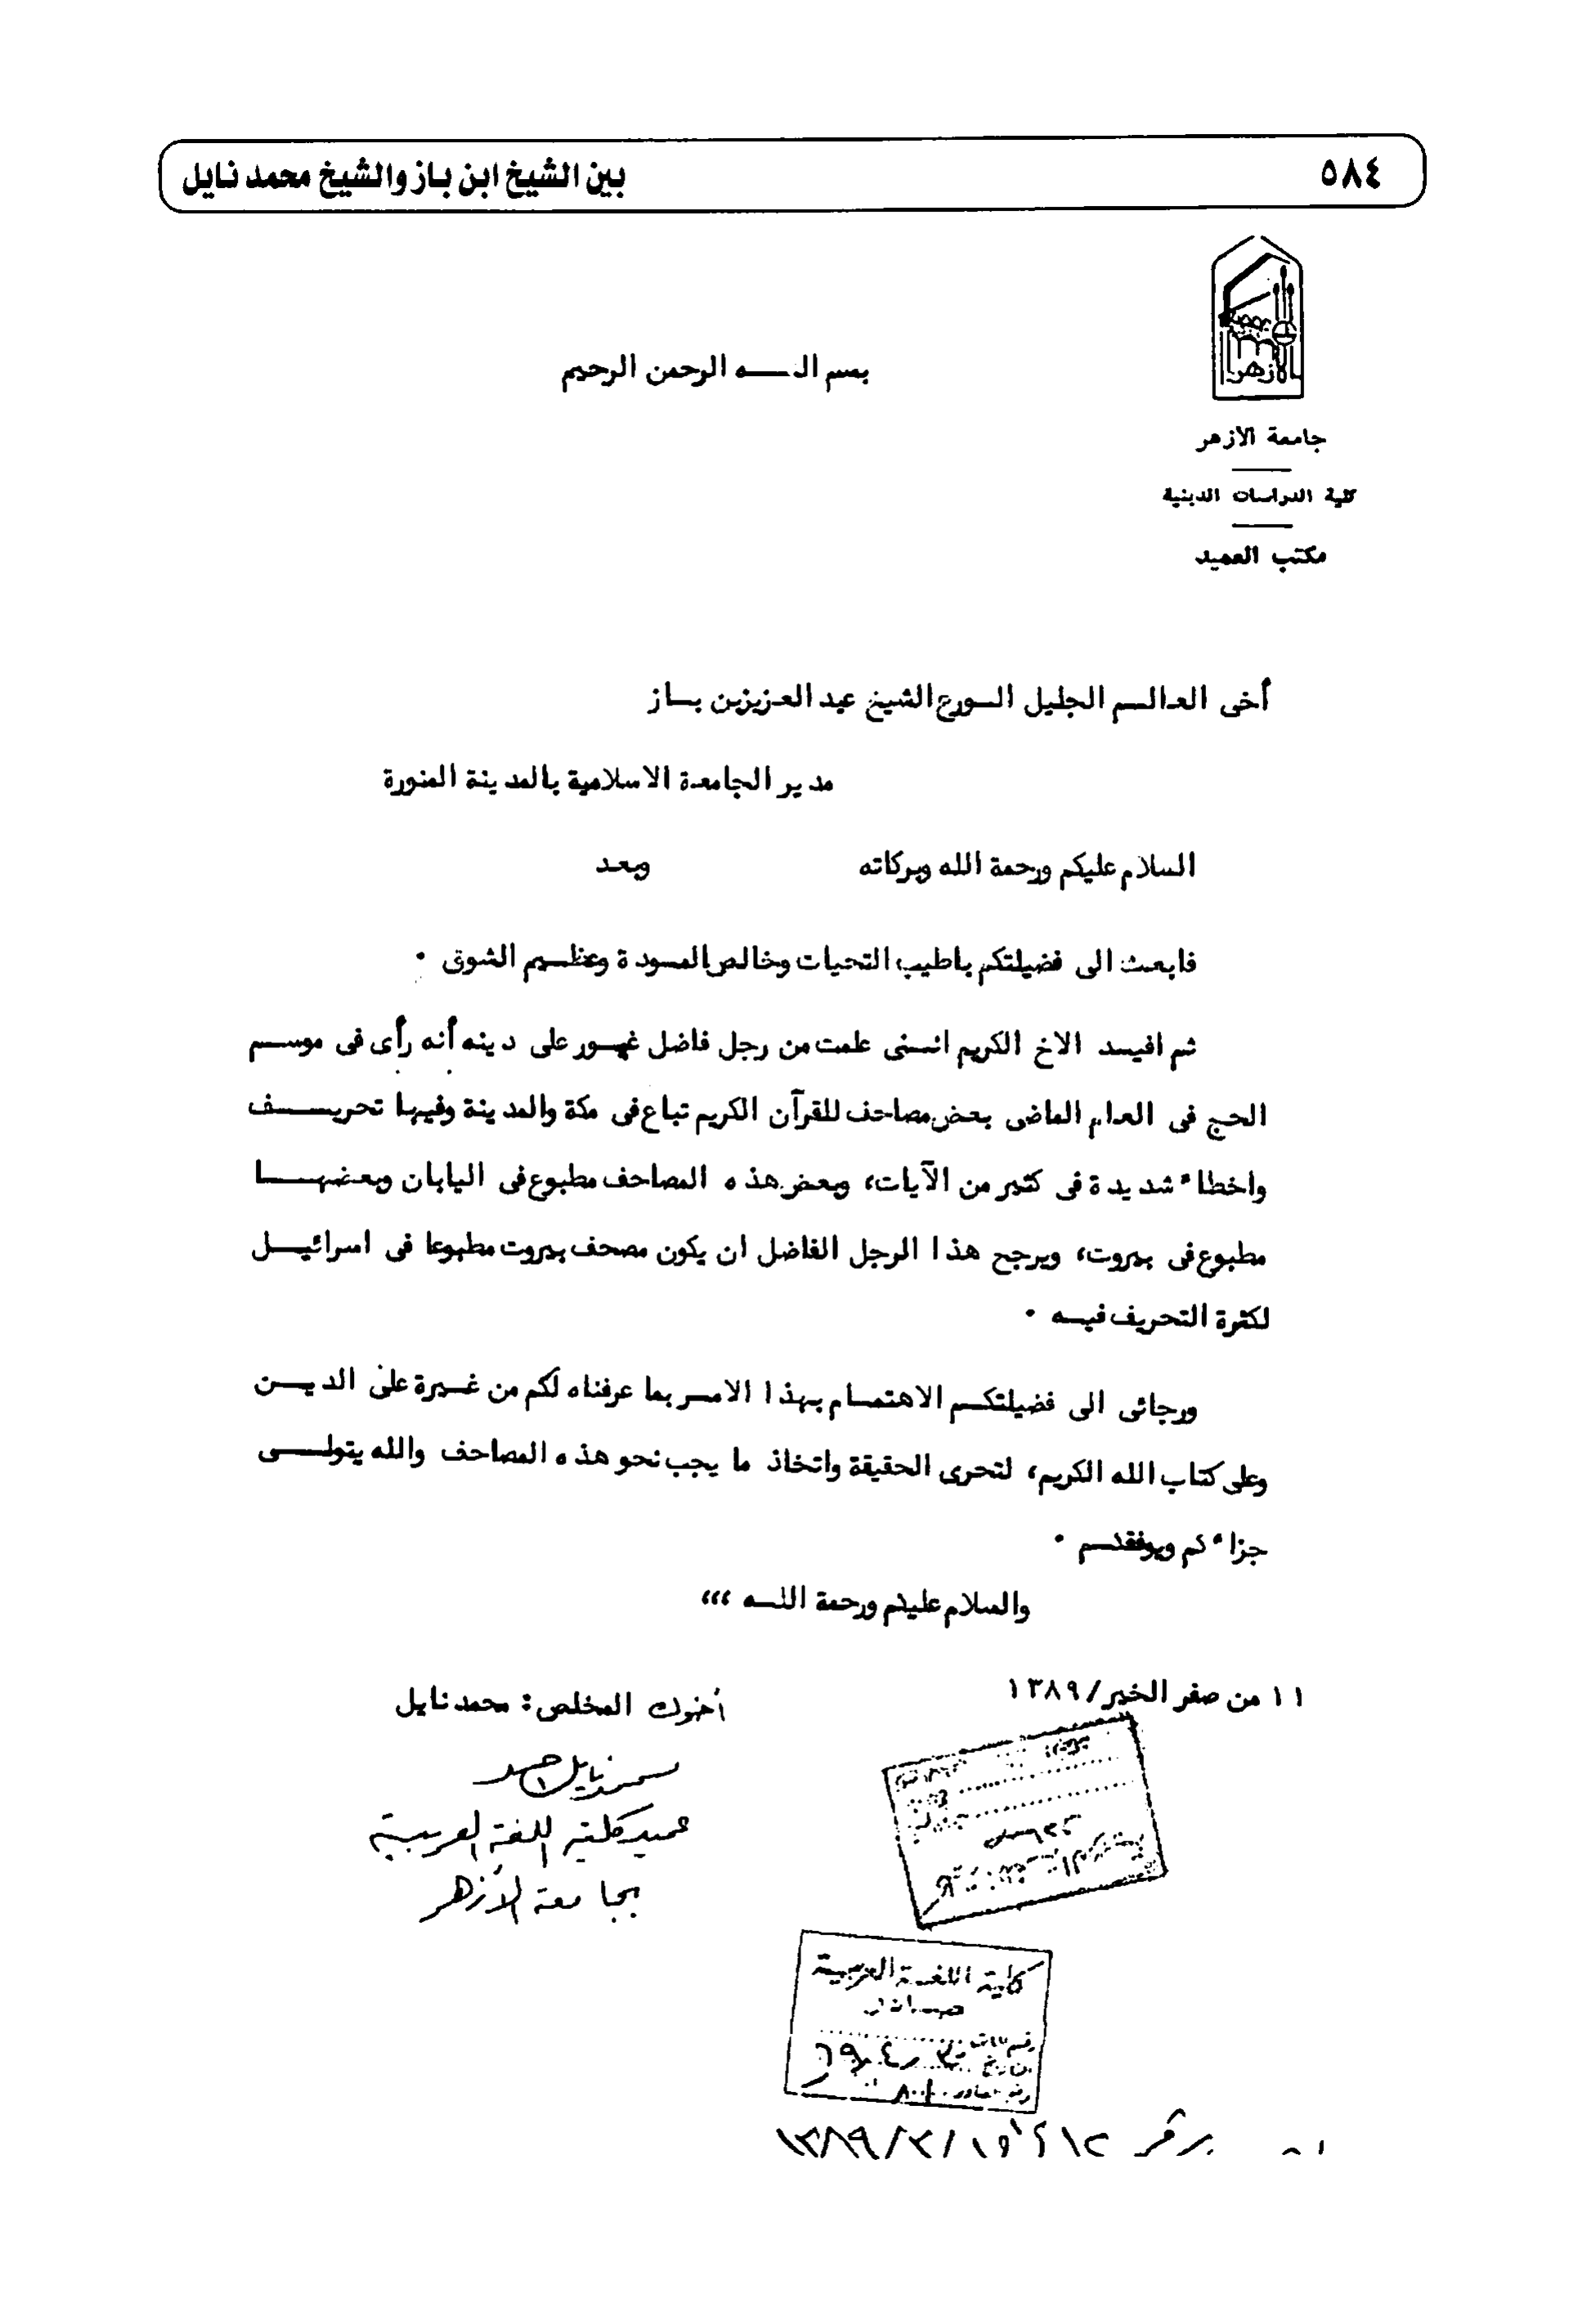 ٥٨٤
بين الشيخ ابن باز والشيخ محمد نايل
الأزهر
بسم اللـــه الرحمن الرحيم
جامعة الازهر
كلية الدراسات الدينية
مكتب العميد
أخى العالم الجليل الورع الشيخ عبد العزيز بن باز
مدير الجامعة الاسلامية بالمدينة المنورة
السلام عليكم ورحمة الله وبركاته وبعد
فابعث الى فضيلتكم باطيب التحيات وخالص المودة وعظيم الشوق ٠
ثم افيد الاخ الكريم اننى علمت من رجل فاضل غيور على دينه أنه رأى فى موسم
الحج فى العام الماضى بعض مصاحف للقرآن الكريم تباع فى مكة والمدينة وفيها تحريف
واخطاء شديدة فى كثير من الآيات، وبعض هذه المصاحف مطبوع فى اليابان وبعضها
مطبوع فى بيروت، ويرجح هذا الرجل الفاضل ان يكون مصحف بيروت مطبوعا فى اسرائيل
لكثرة التحريف فيه ٠
ورجائى الى فضيلتكم الاهتمام بهذا الامر بما عرفناه لكم من غيرة على الدين
وعلى كتاب الله الكريم، لتحرى الحقيقة واتخاذ ما يجب نحو هذه المصاحف والله يتولى
جزاءكم ويوفقكم ٠
والسلام عليكم ورحمة الله ،،،
١١ من صفر الخير/١٣٨٩
أخوك المخلص: محمد نايل
محمد نايل احمد
عميد كلية اللغة العربية
بجامعة الأزهر
كلية اللغة العربية
١٣٨٩/٣/١٥